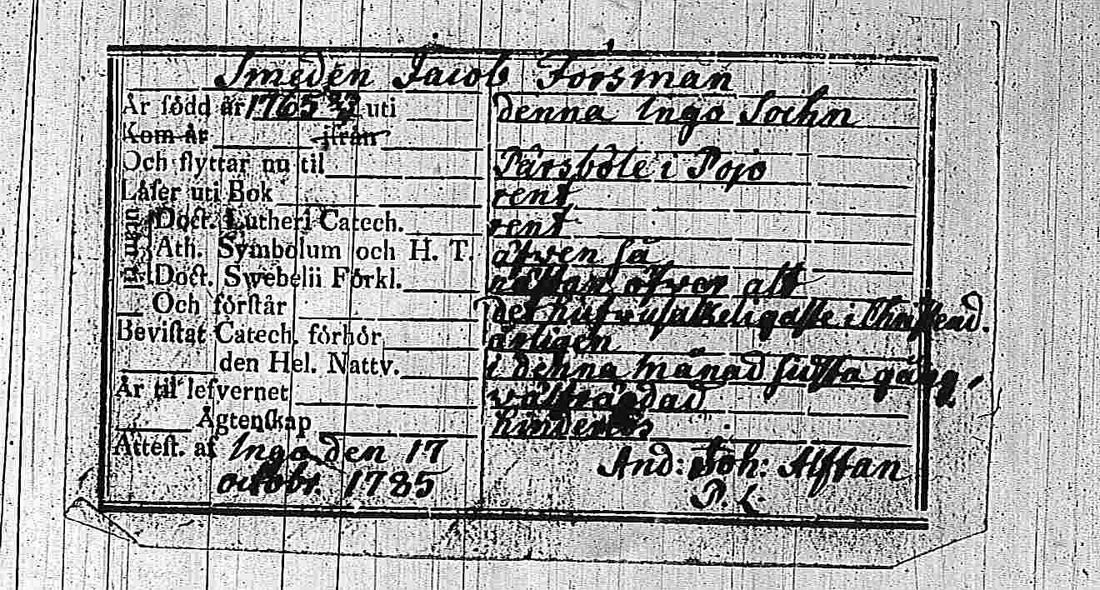 Smeden Jacob Forsman
År född år 1765 uti denna Ingo Sochn
Kom år ifrån
Och flyttar nu til Pärsböle i Pojo
Läser uti Bok rent
Doct. Lutheri Catech. rent
utantil Ath. Symbolum och H. T. äfven så
Doct. Swebelii Förkl. nästan öfver alt
Och förstår det hufvusakeligaste i Christend.
Bevistat Catech. förhör årligen
den Hel. Nattv. i denna månad sidsta gång,
Är til lefvernet välfrägdad
Ägtenskap
Attest. af Ingo den 17 And: Joh: Alftan
octobr. 1785 P. L.